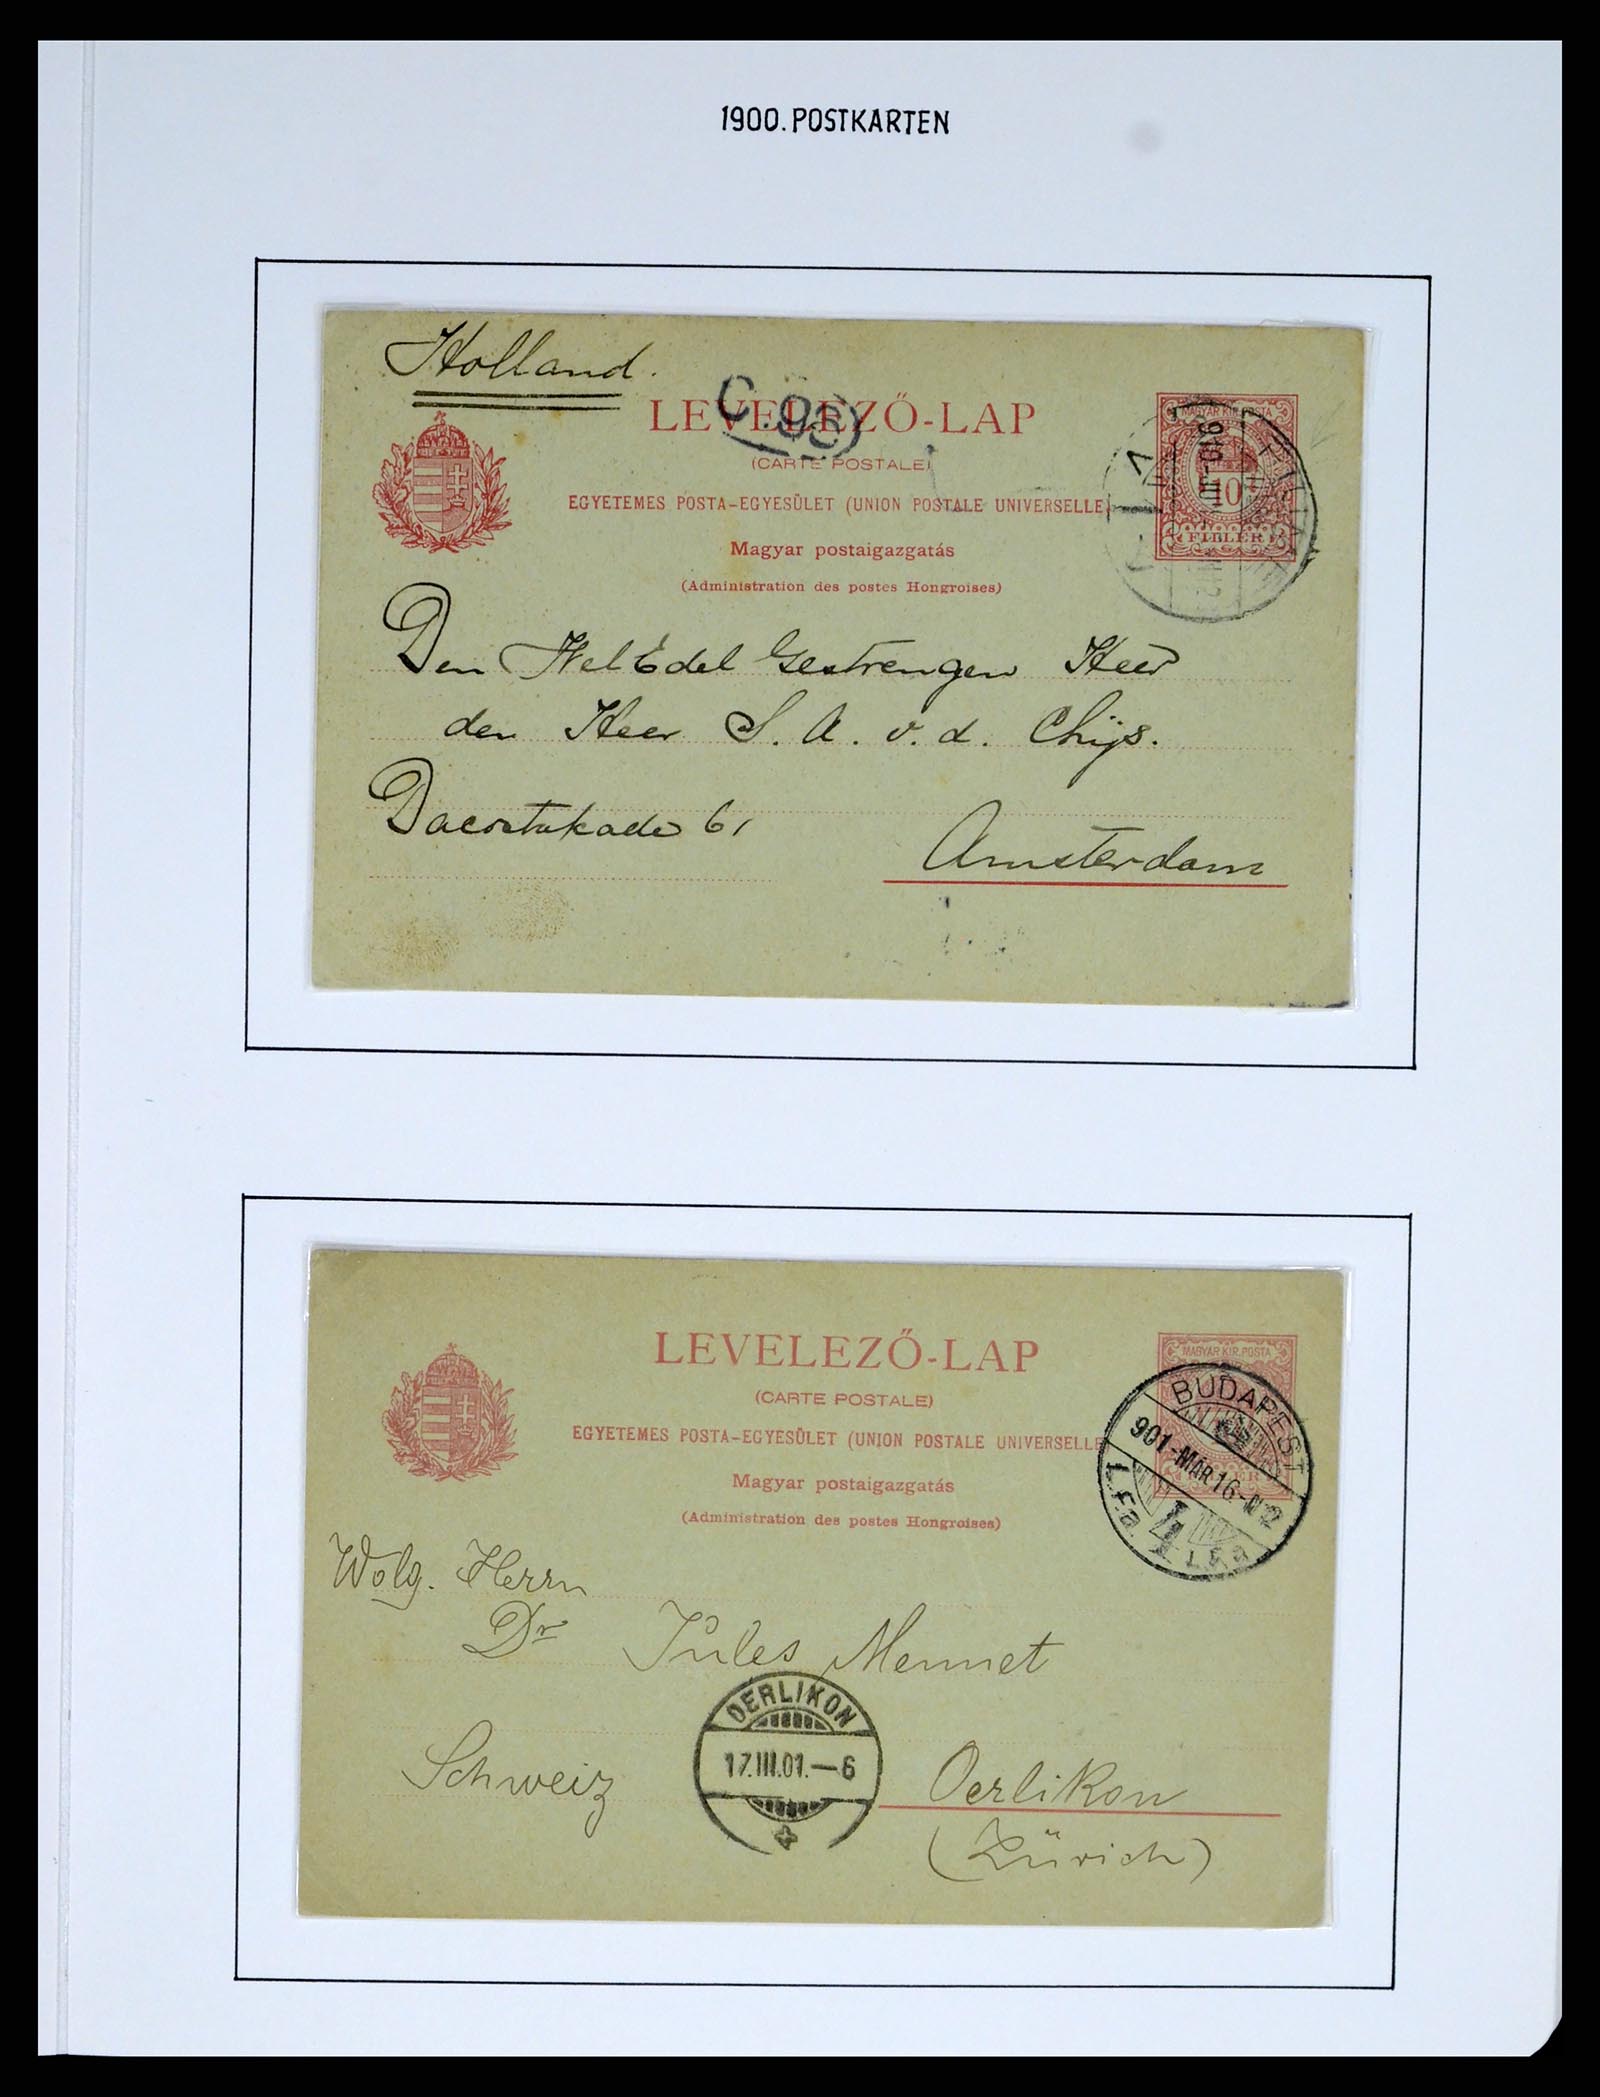 1900.POSTKARTEN
Holland.
C. 93
LEVELEZŐ-LAP
(CARTE POSTALE)
EGYETEMES POSTA-EGYESÜLET (UNION POSTALE UNIVERSELLE)
Magyar postaigazgatás
(Administration des postes Hongroises)
MAGYAR KIR. POSTA
10
FILLÉR
Den WelEdel Gestrengen Heer
den Heer S. A. v. d. Chijs.
Dacostakade 61
Amsterdam
LEVELEZŐ-LAP
(CARTE POSTALE)
EGYETEMES POSTA-EGYESÜLET (UNION POSTALE UNIVERSELLE
Magyar postaigazgatás
(Administration des postes Hongroises)
MAGYAR KIR. POSTA
FILLÉR
BUDAPEST
901-MAR.16-N12
4
Wolg. Herrn
Dr Jules Mennet
OERLIKON
17.III.01.-6
Schweiz
Oerlikon
(Zürich)